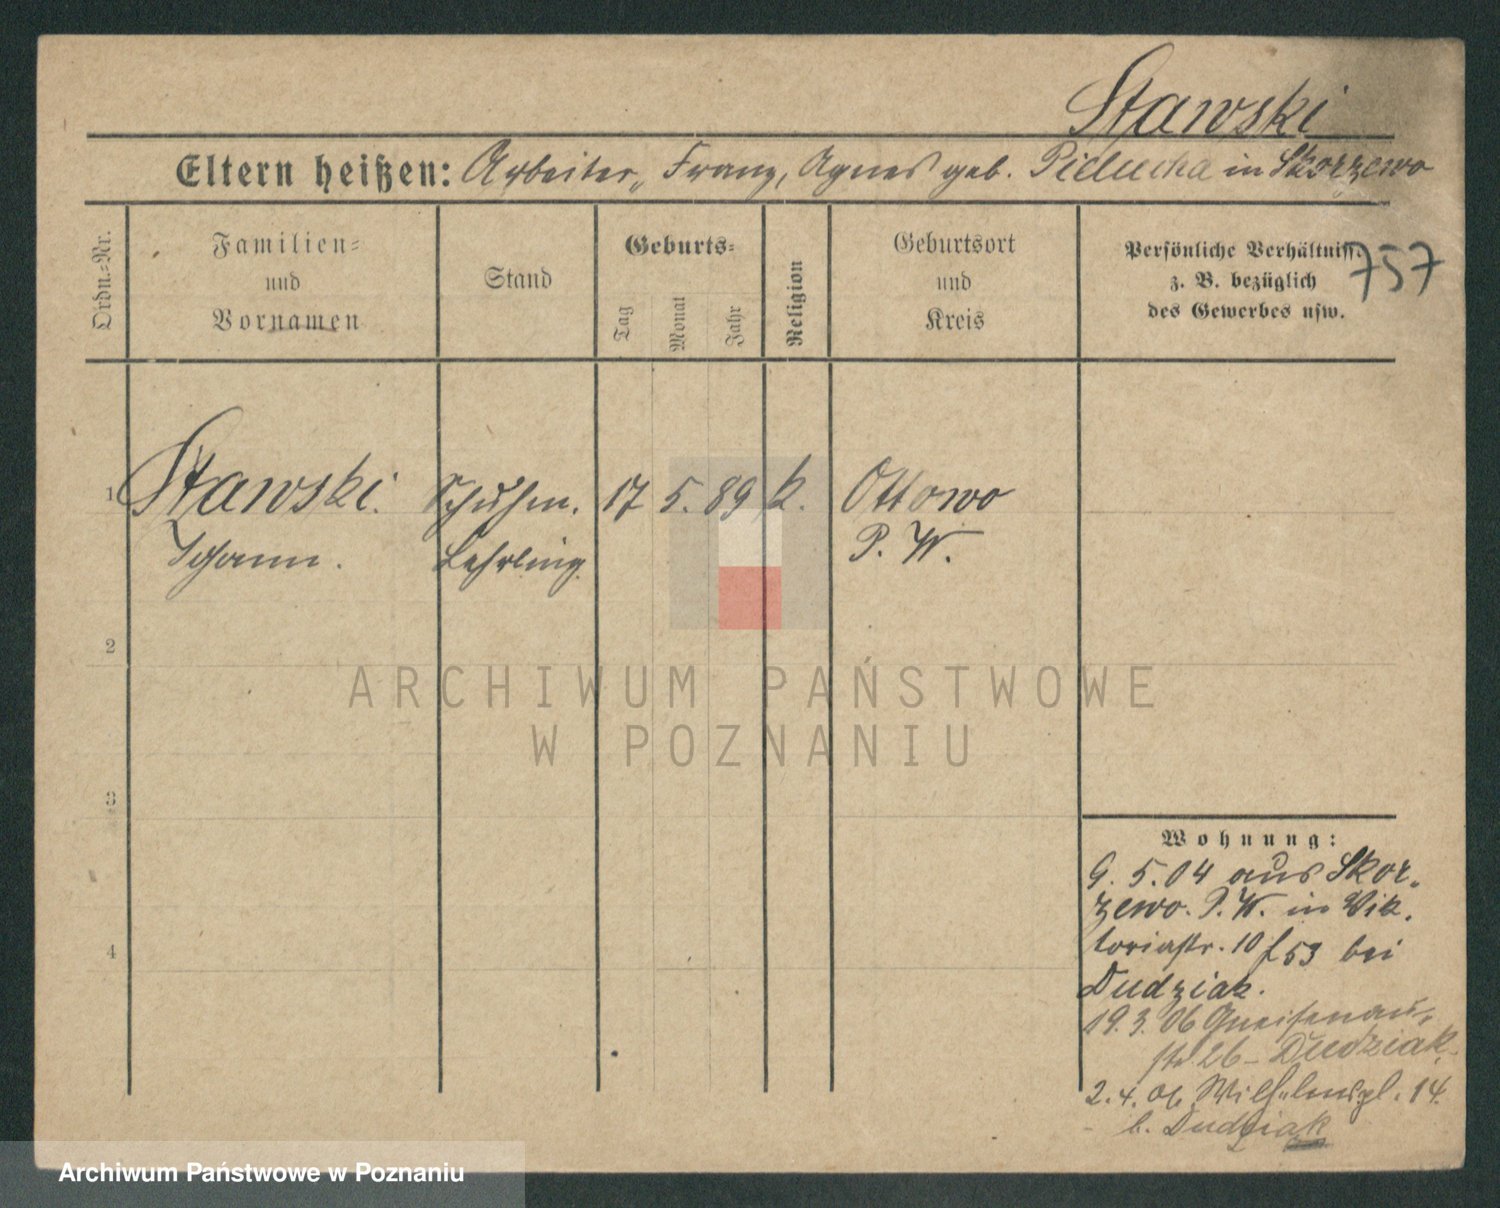 Stawski
Eltern heißen: Arbeiter, Franz, Agnes geb. Pielucha in Skorzewo
Ordn.=Nr.
Familien=
und
Vornamen
Stand
Geburts=
Tag
Monat
Jahr
Religion
Geburtsort
und
Kreis
Persönliche Verhältniss.
z. B. bezüglich
des Gewerbes usw.
757
1
Stawski.
Johann.
Schuhm.
Lehrling
17 5. 89 k.
Ottowo
P. W.
2
3
4
Wohnung:
9. 5. 04 aus Skor-
zewo. P. W. in Vik-
toriastr. 10 f 53 bei
Dudziak.
19. 3. 06 Gneisenau-
str. 2b - Dudziak.
2. 4. 06 Wilhelmspl. 14.
- b. Dudziak
ARCHIWUM PAŃSTWOWE
W POZNANIU
Archiwum Państwowe w Poznaniu